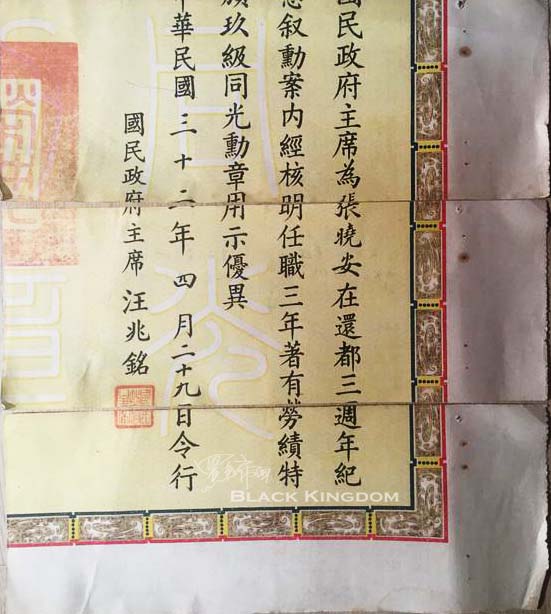 國民政府主席為張曉安在還都三週年紀
念叙勳案内經核明任職三年著有勞績特
頒玖級同光勳章用示優異
中華民國三十二年四月二十九日令行
國民政府主席 汪兆銘
BLACK KINGDOM